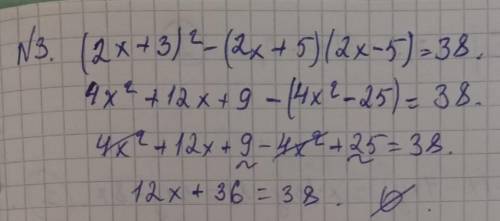 N3. (2x+3)²-(2x+5)(2x-5)=38.
4x²+12x+9-(4x²-25)=38.
4x²+12x+9-4x²+25=38.
12x+36=38. ∅.